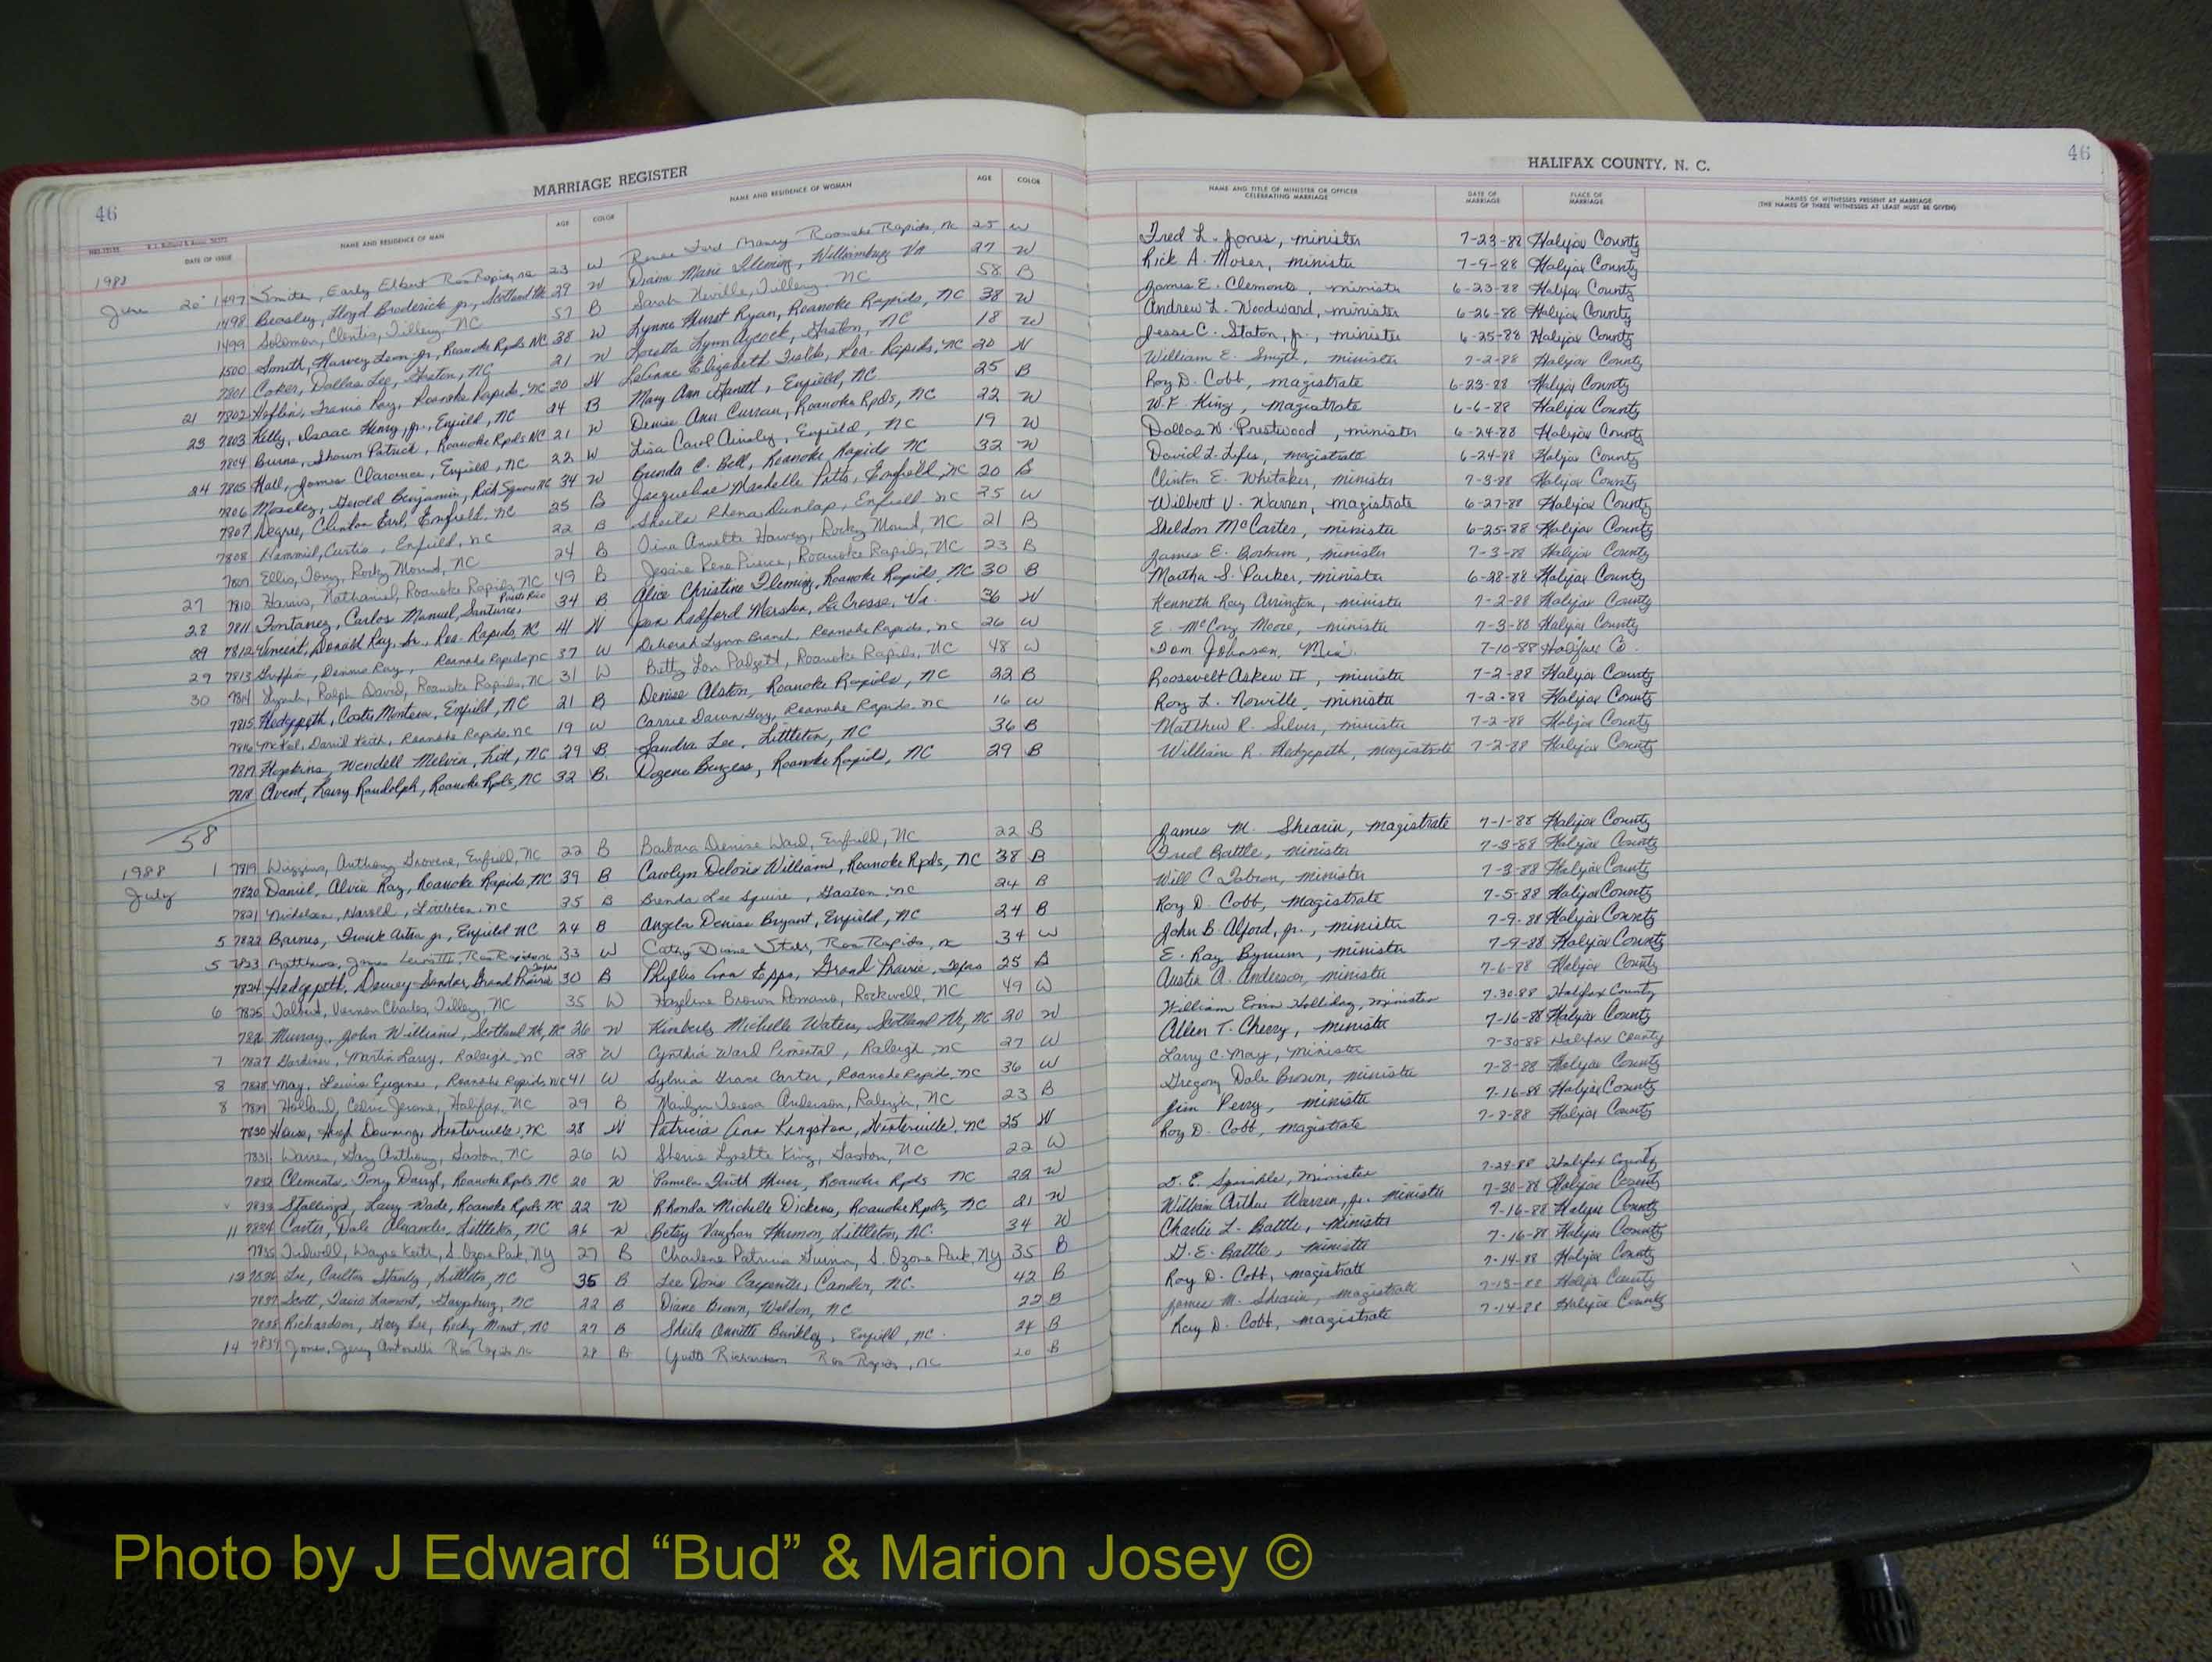 46
MARRIAGE REGISTER
DATE OF ISSUE NAME AND RESIDENCE OF MAN AGE COLOR NAME AND RESIDENCE OF WOMAN AGE COLOR
1988
June 20 1497 Smith, Early Elbert 23 W Renee Ford Manry Roanoke Rapids, NC 25 W
1498 Beasley, Lloyd Broderick Jr, Scotland Nk 29 W Diana Marie Fleming, Williamsburg VA 27 W
1499 Solomon, Clentis, Tillery NC 57 B Sarah Neville, Tillery NC 58 B
1500 Smith, Harvey Leon Jr, Roanoke Rpds NC 38 W Lynne Hurst Ryan, Roanoke Rapids, NC 38 W
7801 Coker, Dallas Lee, Gaston, NC 21 W Loretta Lynn Aycock, Gaston, NC 18 W
21 7802 Heflin, Travis Ray, Roanoke Rapids, NC 20 W Elizabeth Fields, Roa. Rapids, NC 20 W
23 7803 Kelly, Isaac Henry, Jr., Enfield, NC 24 B Mary Ann Enfield, NC 25 B
7804 Burns, Shawn Patrick, Roanoke Rpds NC 21 W Denise Ann Curran, Roanoke Rpds, NC 22 W
24 7805 Hall, James Clarence, Enfield, NC 22 W Lisa Carol Ainsley, Enfield, NC 19 W
7806 Moseley, Gerold Benjamin, Rich Square NC 34 W Brenda C. Bell, Roanoke Rapids NC 32 W
7807 Degree, Clinton Earl, Enfield, NC 25 B Jacqueline Pitts, Enfield, NC 20 B
7808 Curtis, Enfield, NC 22 B Sheila Rhena Dunlap, Enfield NC 25 W
7809 Ellis, Tony, Rocky Mound, NC 24 B Tina Annette Harvey, Rocky Mound, NC 21 B
27 7810 Harris, Nathaniel, Roanoke Rapids, NC 49 B Jessie Rena Pierce, Roanoke Rapids, NC 23 B
28 7811 Fontanez, Carlos Manuel, Santurce, Puerto Rico 34 B Alice Christine Fleming, Roanoke Rapids, NC 30 B
29 7812 Vincent, Donald Ray, Sr., Roa. Rapids, NC 41 W Jean Radford Marston, LaCrosse, Va. 36 W
29 7813 Griffin, Dennis Ray, Roanoke Rapids NC 37 W Deborah Lynn Branch, Roanoke Rapids, NC 26 W
30 7814 Lynch, Ralph David, Roanoke Rapids, NC 31 W Betty Lou Padgett, Roanoke Rapids, NC 48 W
7815 Hedgepeth, Enfield, NC 21 B Denise Alston, Roanoke Rapids, NC 22 B
7816 David Keith, Roanoke Rapids, NC 19 W Carrie Roanoke Rapids, NC 16 W
7817 Hopkins, Wendell Melvin, Litt, NC 29 B Sandra Lee, Littleton, NC 36 B
7818 Avent, Randolph, Roanoke Rpds, NC 32 B. Burgess, Roanoke Rapids, NC 29 B
58
1988 1 7819 Wiggins, Anthony Enfield, NC 22 B Barbara Denise Ward, Enfield, NC 22 B
July 7820 Daniel, Alvin Ray, Roanoke Rapids, NC 39 B Carolyn Deloris Williams, Roanoke Rpds, NC 38 B
7821 Nicholson, Harold, Littleton, NC 35 B Brenda Lee Squire, Gaston, NC 24 B
5 7822 Barnes, Frank Jr., Enfield NC 24 B Angela Denise Bryant, Enfield, NC 24 B
5 7823 Matthews, James 33 W Cathy Diane Roa Rapids, NC 34 W
7824 Hedgepeth, Dewey Grand Prairie Texas 30 B Phyllis Ann Epps, Grand Prairie, Texas 25 B
6 7825 Talbert, Vernon Charles, Tillery, NC 35 W Hazeline Brown Romans, Rockwell, NC 49 W
7826 Murray, John William, Scotland Nk, NC 26 W Kimberly Michelle Waters, Scotland Nk, NC 20 W
7 7827 Gardner, Martin Larry, Raleigh, NC 28 W Cynthia Ward Pimental, Raleigh, NC 27 W
8 7828 May, Lewis Eugene, Roanoke Rapids, NC 41 W Sylvia Grace Carter, Roanoke Rapids, NC 36 W
8 7829 Holland, Jerome, Halifax, NC 29 B Marilyn Teresa Anderson, Raleigh, NC 23 B
7830 House, Hugh Downing, Winterville, NC 28 W Patricia Ann Kingston, Winterville, NC 25 W
7831 Warren, Gary Anthony, Gaston, NC 26 W Sherie Lynette King, Gaston, NC 22 W
7832 Clements, Tony Darryl, Roanoke Rpds NC 20 W Pamela Faith Roanoke Rpds NC 22 W
7833 Stallings, Larry Wade, Roanoke Rpds NC 22 W Rhonda Michelle Dickens, Roanoke Rpds, NC 21 W
11 7834 Carter, Dale Alexander, Littleton, NC 26 W Betsy Vaughan Harmon, Littleton, NC. 34 W
7835 Tidwell, Wayne Keith, S. Ozone Park, NY 27 B Charlene Patricia Gunn, S. Ozone Park, NY 35 B
12 7836 Lee, Carlton Stanley, Littleton, NC 35 B Lee Doris Carpenter, Camden, NC. 42 B
7837 Scott, Travis Lamont, Garysburg, NC 22 B Diane Brown, Weldon, NC 22 B
7838 Richardson, Lee, Rocky Mount, NC 27 B Sheila Annette Brinkley, Enfield, NC. 24 B
14 7839 Jones, Jerry 28 B Richardson Roa Rapids, NC 20 B
HALIFAX COUNTY, N. C. 46
NAME AND TITLE OF MINISTER OR OFFICER CELEBRATING MARRIAGE DATE OF MARRIAGE PLACE OF MARRIAGE NAMES OF WITNESSES PRESENT AT MARRIAGE
(THE NAMES OF THREE WITNESSES AT LEAST MUST BE GIVEN)
Fred L. Jones, minister 7-23-88 Halifax County
Rick A. Moser, minister 7-9-88 Halifax County
James E. Clemonts, minister 6-23-88 Halifax County
Andrew L. Woodward, minister 6-26-88 Halifax County
Jesse C. Staton, Jr., minister 6-25-88 Halifax County
William E. Smyth, minister 7-2-88 Halifax County
Roy D. Cobb, magistrate 6-23-88 Halifax County
W.F. King, magistrate 6-6-88 Halifax County
Dallas W. Prestwood, minister 6-24-88 Halifax County
David L. Liles, magistrate 6-24-88 Halifax County
Clinton E. Whitaker, minister 7-3-88 Halifax County
Wilbert V. Warren, magistrate 6-27-88 Halifax County
Sheldon McCarter, minister 6-25-88 Halifax County
James E. Borham, minister 7-3-88 Halifax County
Martha S. Parker, minister 6-28-88 Halifax County
Kenneth Ray Arrington, minister 7-2-88 Halifax County
E. McCoy Moore, minister 7-3-88 Halifax County
Tom Johnson, Min. 7-10-88 Halifax Co.
Roosevelt Askew II, minister 7-2-88 Halifax County
Roy L. Norville, minister 7-2-88 Halifax County
Matthew R. Silver, minister 7-2-88 Halifax County
William R. Hedgepeth, magistrate 7-2-88 Halifax County
James M. Shearin, magistrate 7-1-88 Halifax County
Fred Battle, minister 7-3-88 Halifax County
Will C. Tabron, minister 7-3-88 Halifax County
Roy D. Cobb, magistrate 7-5-88 Halifax County
John B. Alford, Jr., minister 7-9-88 Halifax County
E. Ray Bynum, minister 7-9-88 Halifax County
Austin A. Anderson, minister 7-6-88 Halifax County
William Ervin Holliday, minister 7-30-88 Halifax County
Allen T. Cherry, minister 7-16-88 Halifax County
Larry C. May, minister 7-30-88 Halifax County
Gregory Dale Brown, minister 7-8-88 Halifax County
Jim Perry, minister 7-16-88 Halifax County
Roy D. Cobb, magistrate 7-8-88 Halifax County
D. E. Sprinkle, Minister 7-29-88 Halifax County
William Arthur Warren, Jr. minister 7-30-88 Halifax County
Charlie L. Battle, minister 7-16-88 Halifax County
G. E. Battle, minister 7-16-88 Halifax County
Roy D. Cobb, magistrate 7-14-88 Halifax County
James M. Shearin, magistrate 7-13-88 Halifax County
Roy D. Cobb, magistrate 7-14-88 Halifax County
Photo by J Edward “Bud” & Marion Josey ©